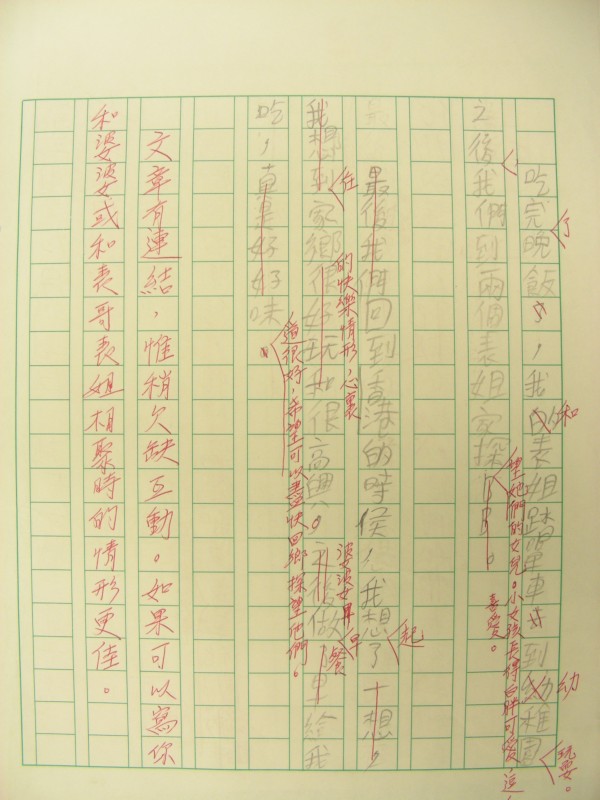 吃完晚飯，我
表姐踏單車
到幼稚園
了
和
幼
玩耍。
之後我們到兩個表姐家探
望她們的女兒。小女孩長得白胖可愛，
喜愛。
最後我們回到香港的時侯，我想了一想，
起
的快樂情形，心裏
婆婆
早餐
我想到家鄉很好玩我很高興。之後做早 給我
在
吃，真真好好味
很好，希望可以盡快回鄉探望他們。
文章有連結，惟稍欠缺互動。如果可以寫你
和婆婆或和表哥表姐相聚時的情形更佳。